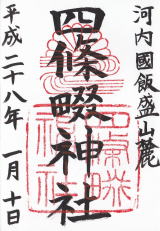 河内國飯盛山麓
四條畷神社
平成二十八年 一月十日